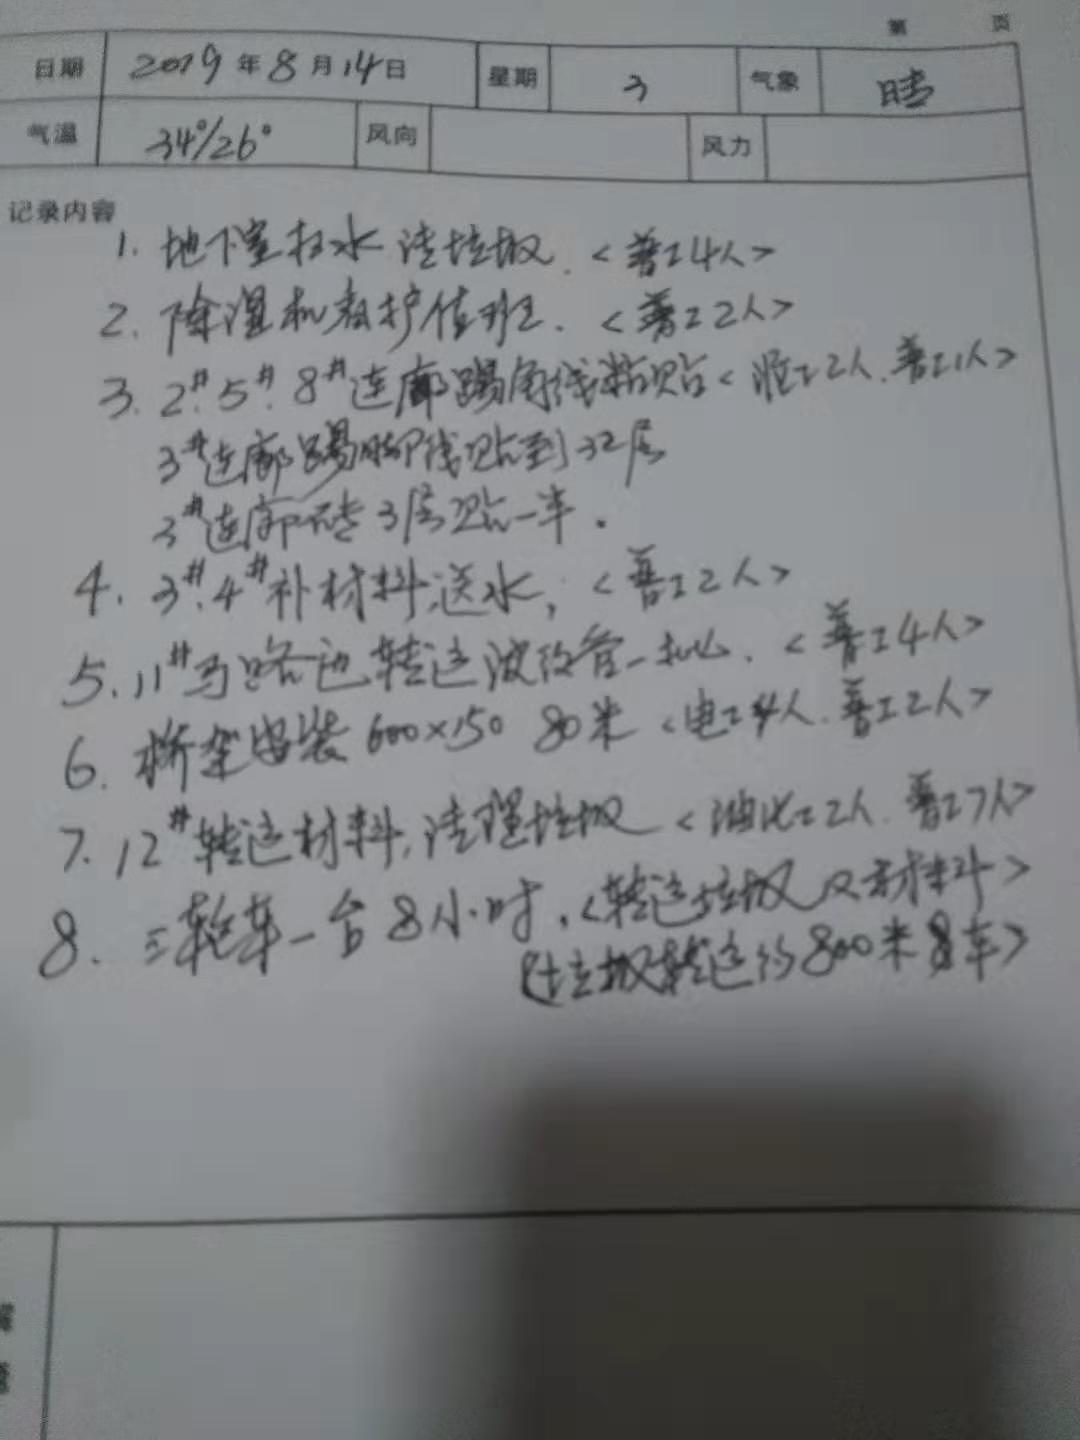 第 页
日期 2019年8月14日 星期 3 气象 晴
气温 34°/26° 风向 风力
记录内容
1. 地下室扫水 清垃圾.<普工4人>
2. 除湿机看护值班.<普工2人>
3. 2#.5#.8#连廊踢角线粘贴<泥工2人.普工1人>
3#连廊踢脚线贴到32层
3#连廊砖3层贴一半.
4. 3#.4#补材料,送水,<普工2人>
5. 11#马路边转运波纹管一批.<普工4人>
6. 桥架安装 600×150 80米<电工4人.普工2人>
7. 12#转运材料,清理垃圾<油化工2人.普工7人>
8. 三轮车一台8小时.<转运垃圾及材料>
<垃圾转运约800米8车>